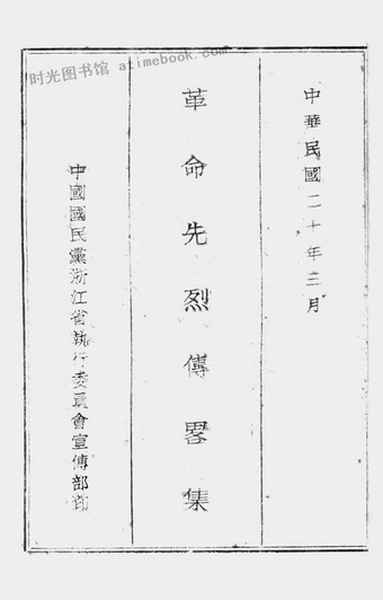 时光图书馆 atimebook.com
中華民國二十年三月
革命先烈傳畧集
中國國民黨浙江省執行委員會宣傳部印